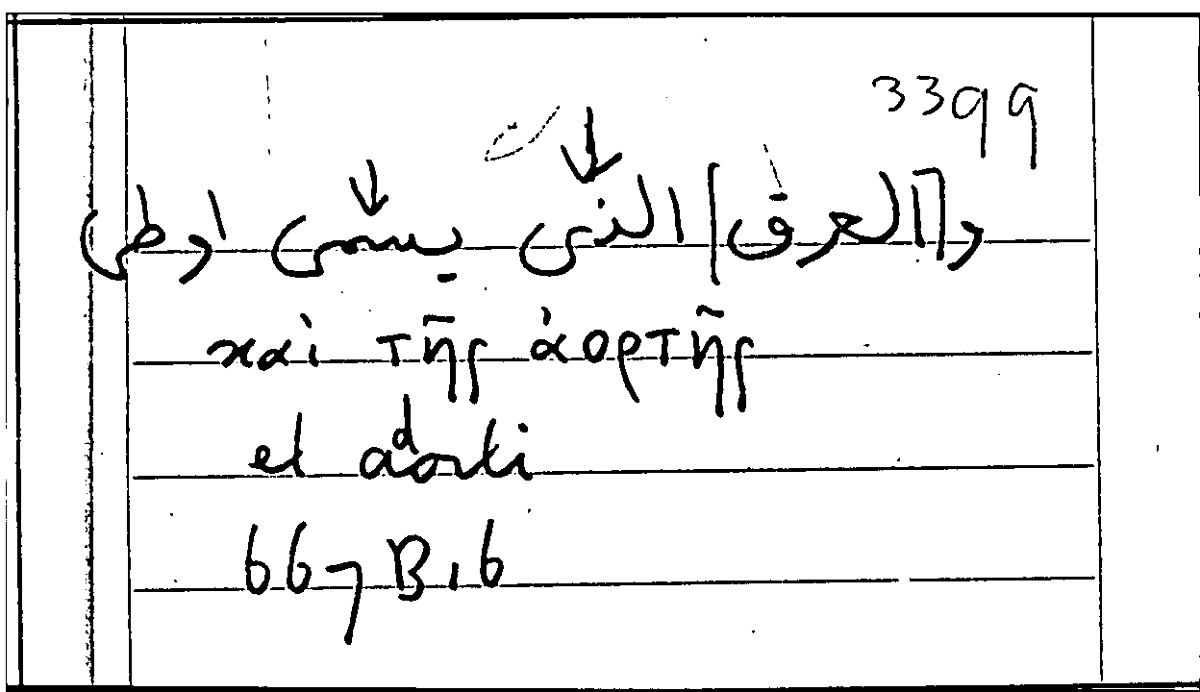 3399
و[العرق] الذى يسمى اورطى
καὶ τῆς ἀορτῆς
et adorti
667 B, 6